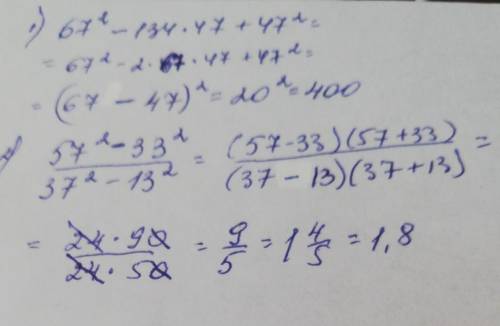 1) 67² - 134·47 + 47² =
= 67² - 2·67·47 + 47² =
= (67 - 47)² = 20² = 400
(57² - 33²)/(37² - 13²) = ((57-33)(57+33))/((37-13)(37+13)) =
= (24·90)/(24·50) = 9/5 = 1 4/5 = 1,8